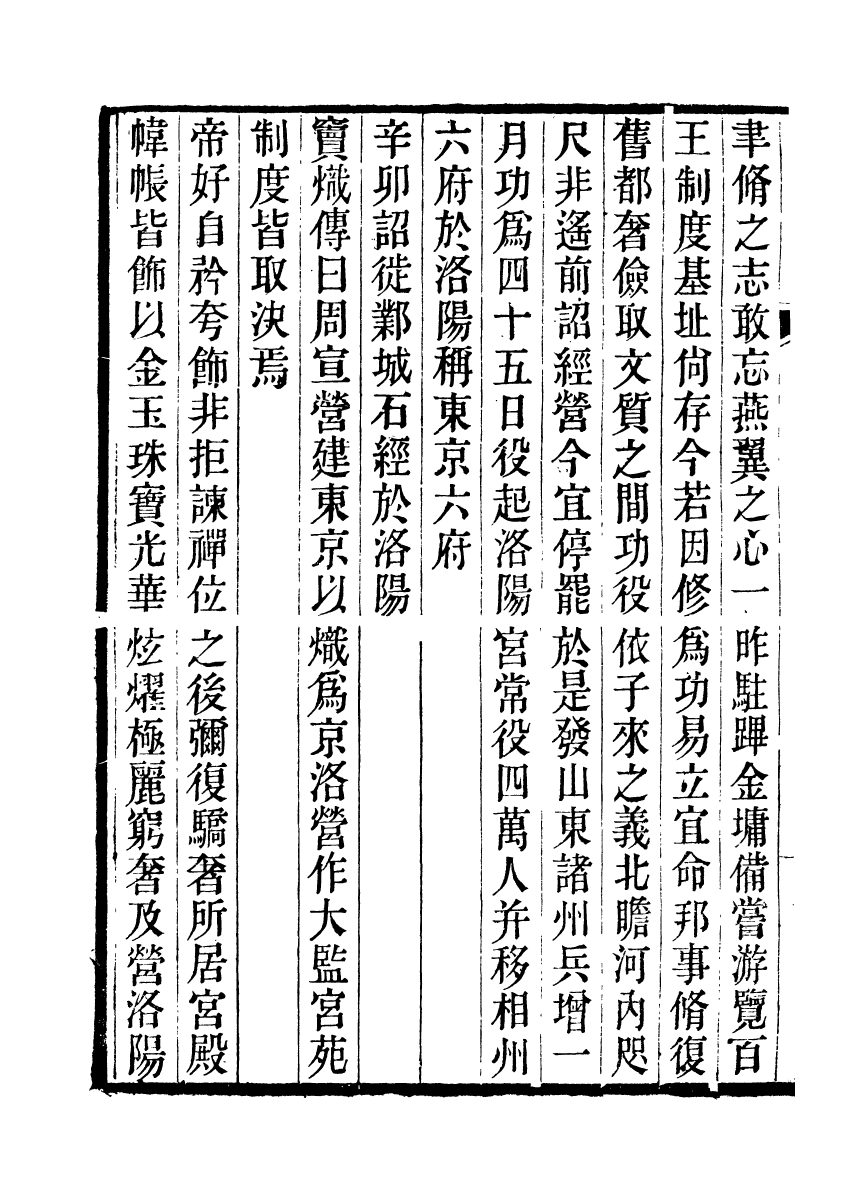 聿脩之志敢忘燕翼之心一昨駐蹕金墉備嘗游覽百
王制度基址尙存今若因修爲功易立宜命邦事脩復
舊都奢儉取文質之間功役依子來之義北瞻河內咫
尺非遙前詔經營今宜停罷於是發山東諸州兵增一
月功爲四十五日役起洛陽宮常役四萬人并移相州
六府於洛陽稱東京六府
辛卯詔徙鄴城石經於洛陽
竇熾傳曰周宣營建東京以熾爲京洛營作大監宮苑
制度皆取決焉
帝好自矜夸飾非拒諫禪位之後彌復驕奢所居宮殿
幃帳皆飾以金玉珠寶光華炫燿極麗窮奢及營洛陽